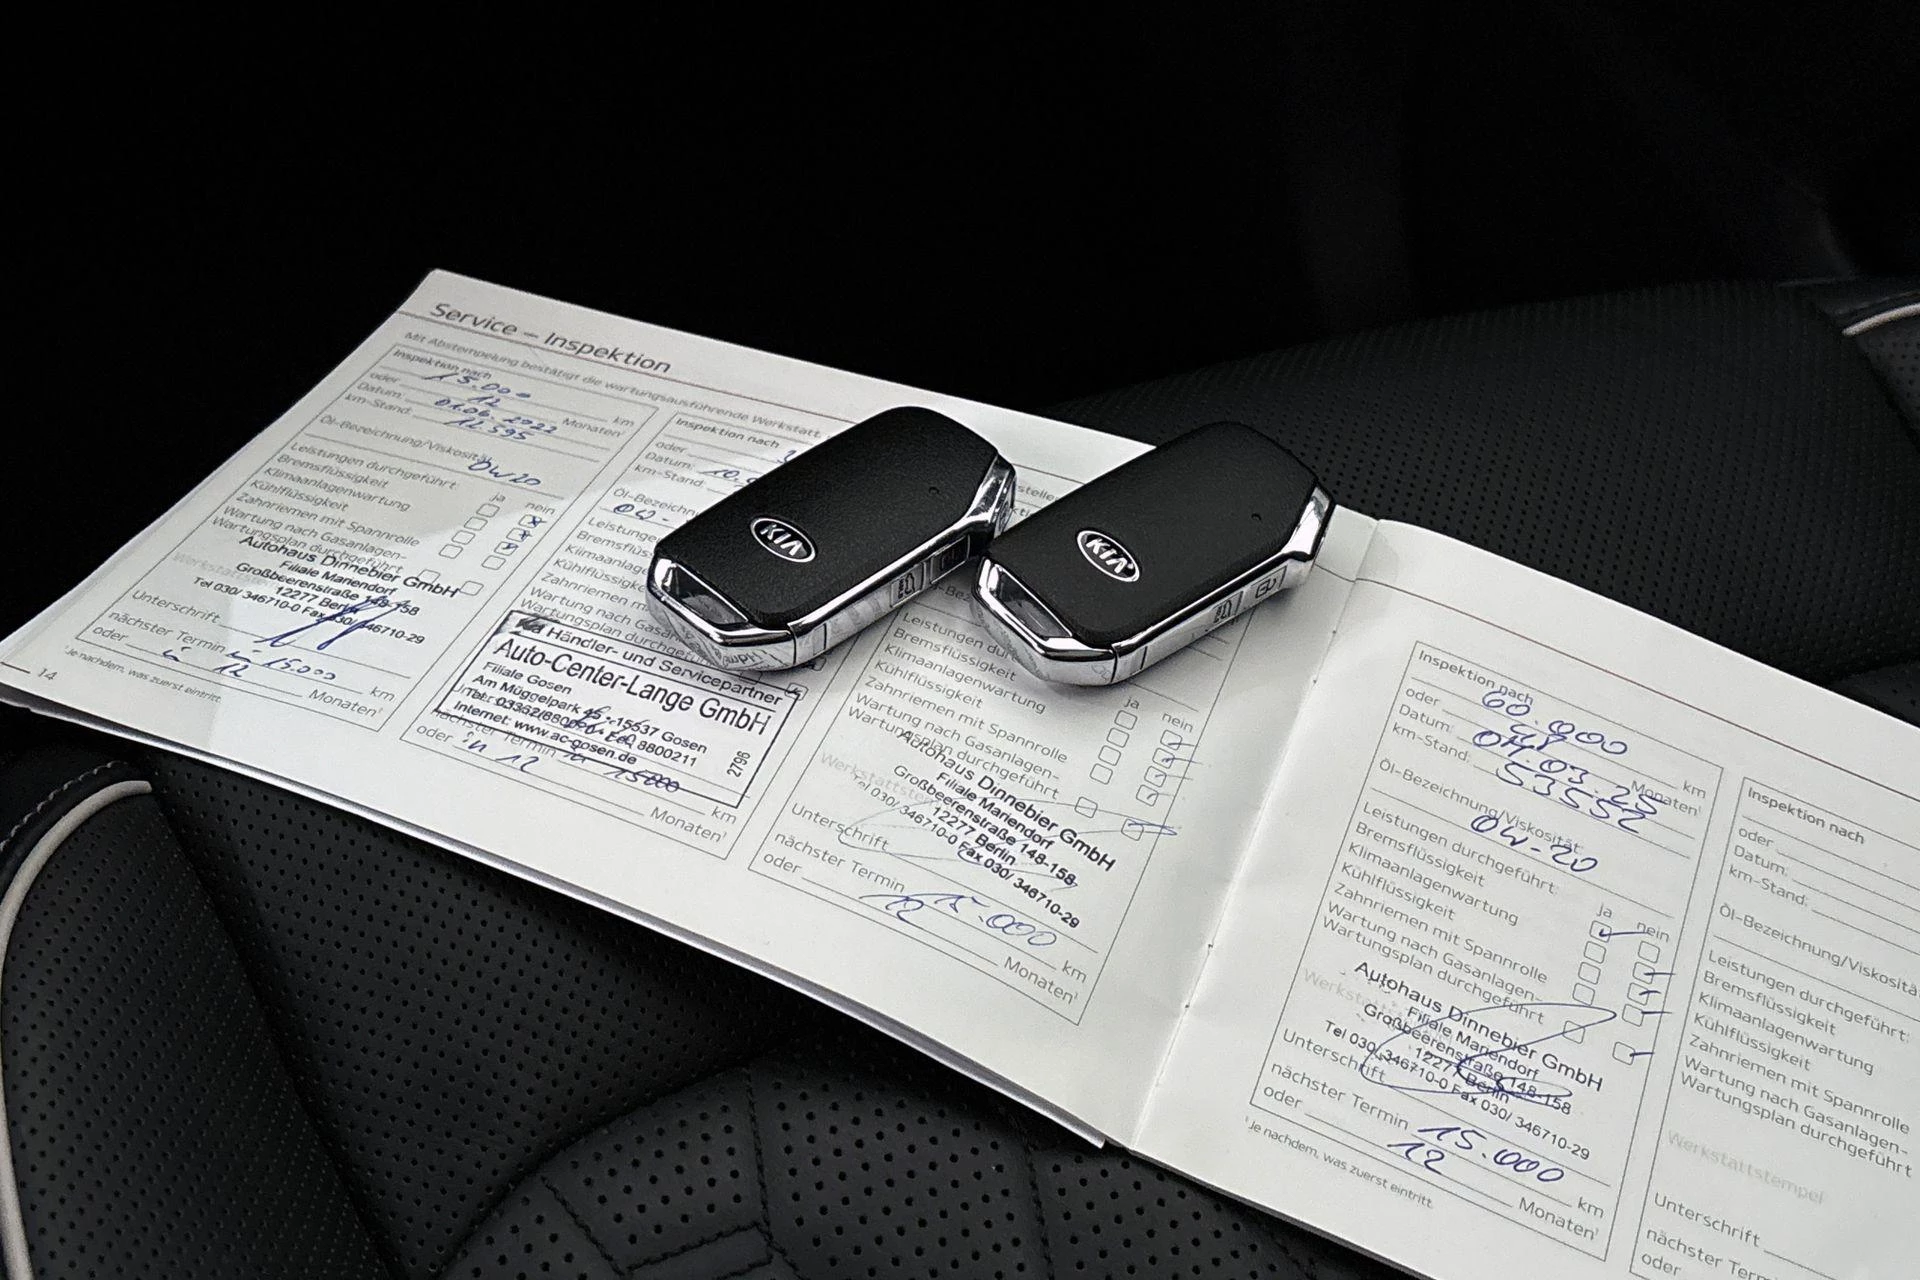 Service – Inspektion
Mit Abstempelung bestätigt die wartungsausführende Werkstatt,
Inspektion nach
15.000 km
oder 12 Monaten¹
Datum: 01.06.2022
km-Stand: 12.595
Öl-Bezeichnung/Viskosität:
0W20
Leistungen durchgeführt: ja nein
Bremsflüssigkeit
Klimaanlagenwartung
Kühlflüssigkeit
Zahnriemen mit Spannrolle
Wartung nach Gasanlagen-
Wartungsplan durchgeführt
Autohaus Dinnebier GmbH
Filiale Mariendorf
Großbeerenstraße 148-158
12277 Berlin
Tel 030/ 346710-0 Fax 030/ 346710-29
Unterschrift
nächster Termin in 15.000 km
oder in 12 Monaten¹
¹Je nachdem, was zuerst eintritt.
14
Inspektion nach
oder
Datum: 10.
km-Stand:
Öl-Bezeichn
0W-
Leistunge
Bremsflüs
Klimaanl
Kühlflüssi
Zahnriemen m
Wartung nach Gasan
Wartungsplan durchgefü
Kia Händler- und Servicepartner
Auto-Center-Lange GmbH
Filiale Gosen
Am Müggelpark 45 · 15537 Gosen
8800211
Internet: www.ac-gosen.de
2796
nächster Termin in 15000 km
oder in 12 Monaten¹
Leistungen du
Bremsflüssigkeit
Klimaanlagenwartung
Kühlflüssigkeit
Zahnriemen mit Spannrolle
Wartung nach Gasanlagen-
Wartungsplan durchgeführt
ja nein
Autohaus Dinnebier GmbH
Filiale Mariendorf
Großbeerenstraße 148-158
12277 Berlin
Tel 030/ 346710-0 Fax 030/ 346710-29
Unterschrift
nächster Termin 15.000 km
oder 12 Monaten¹
KIA
KIA
Inspektion nach
60.000 km
oder 48 Monaten¹
Datum: 04.03.25
km-Stand: 53552
Öl-Bezeichnung/Viskosität:
0W-20
Leistungen durchgeführt: ja nein
Bremsflüssigkeit
Klimaanlagenwartung
Kühlflüssigkeit
Zahnriemen mit Spannrolle
Wartung nach Gasanlagen-
Wartungsplan durchgeführt
Autohaus Dinnebier GmbH
Filiale Mariendorf
Großbeerenstraße 148-158
12277 Berlin
Tel 030/ 346710-0 Fax 030/ 346710-29
Unterschrift
nächster Termin 15.000 km
oder 12 Monaten¹
¹Je nachdem, was zuerst eintritt.
Inspektion nach
oder
Datum:
km-Stand:
Öl-Bezeichnung/Viskosität
Leistungen durchgeführt:
Bremsflüssigkeit
Klimaanlagenwartung
Kühlflüssigkeit
Zahnriemen mit Spannrolle
Wartung nach Gasanlagen-
Wartungsplan durchgeführt
Werkstattstempel
Unterschrift
nächster Termin
oder